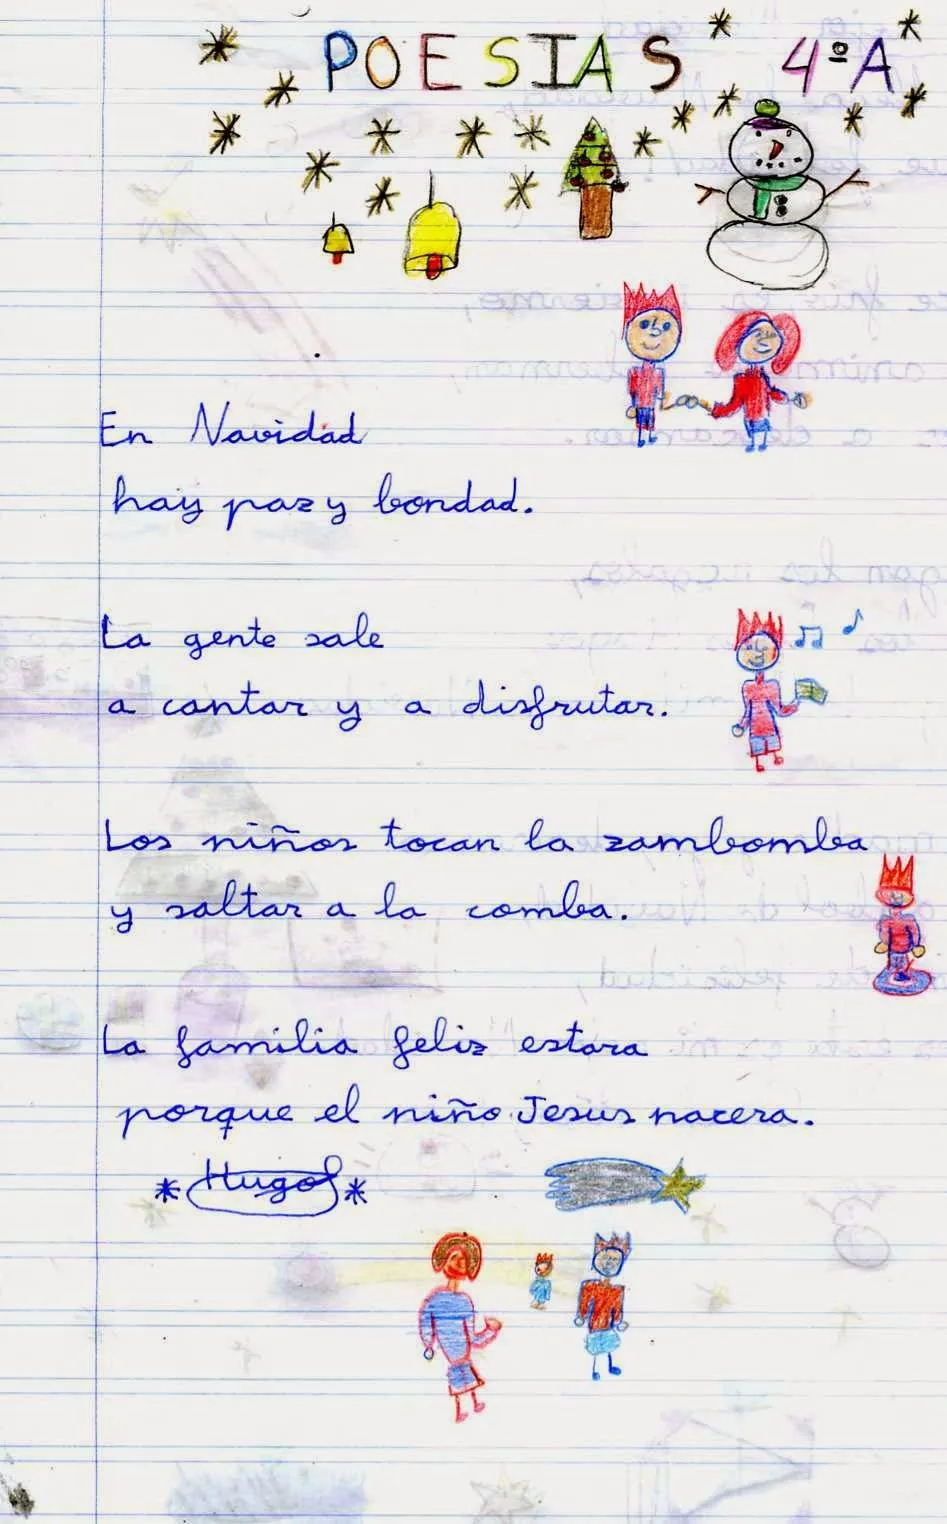 POESIAS 4ºA
En Navidad
hay paz y bondad.
La gente sale
a cantar y a disfrutar.
Los niños tocan la zambomba
y saltar a la comba.
La familia feliz estara
porque el niño Jesus nacera.
* Hugo *